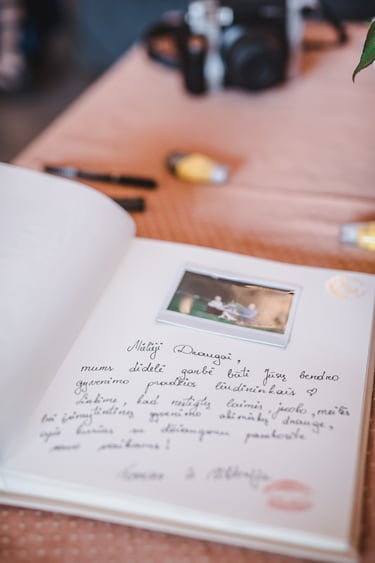 Mieliji Draugai,
mums didelė garbė būti Jūsų bendro
gyvenimo pradžios liudininkais ♡
Linkime, kad netrūktų laimės, juoko, meilės
bei įsimintinų gyvenimo akimirkų drauge,
apie kurias su džiaugsmu pasakosite
savo vaikams!